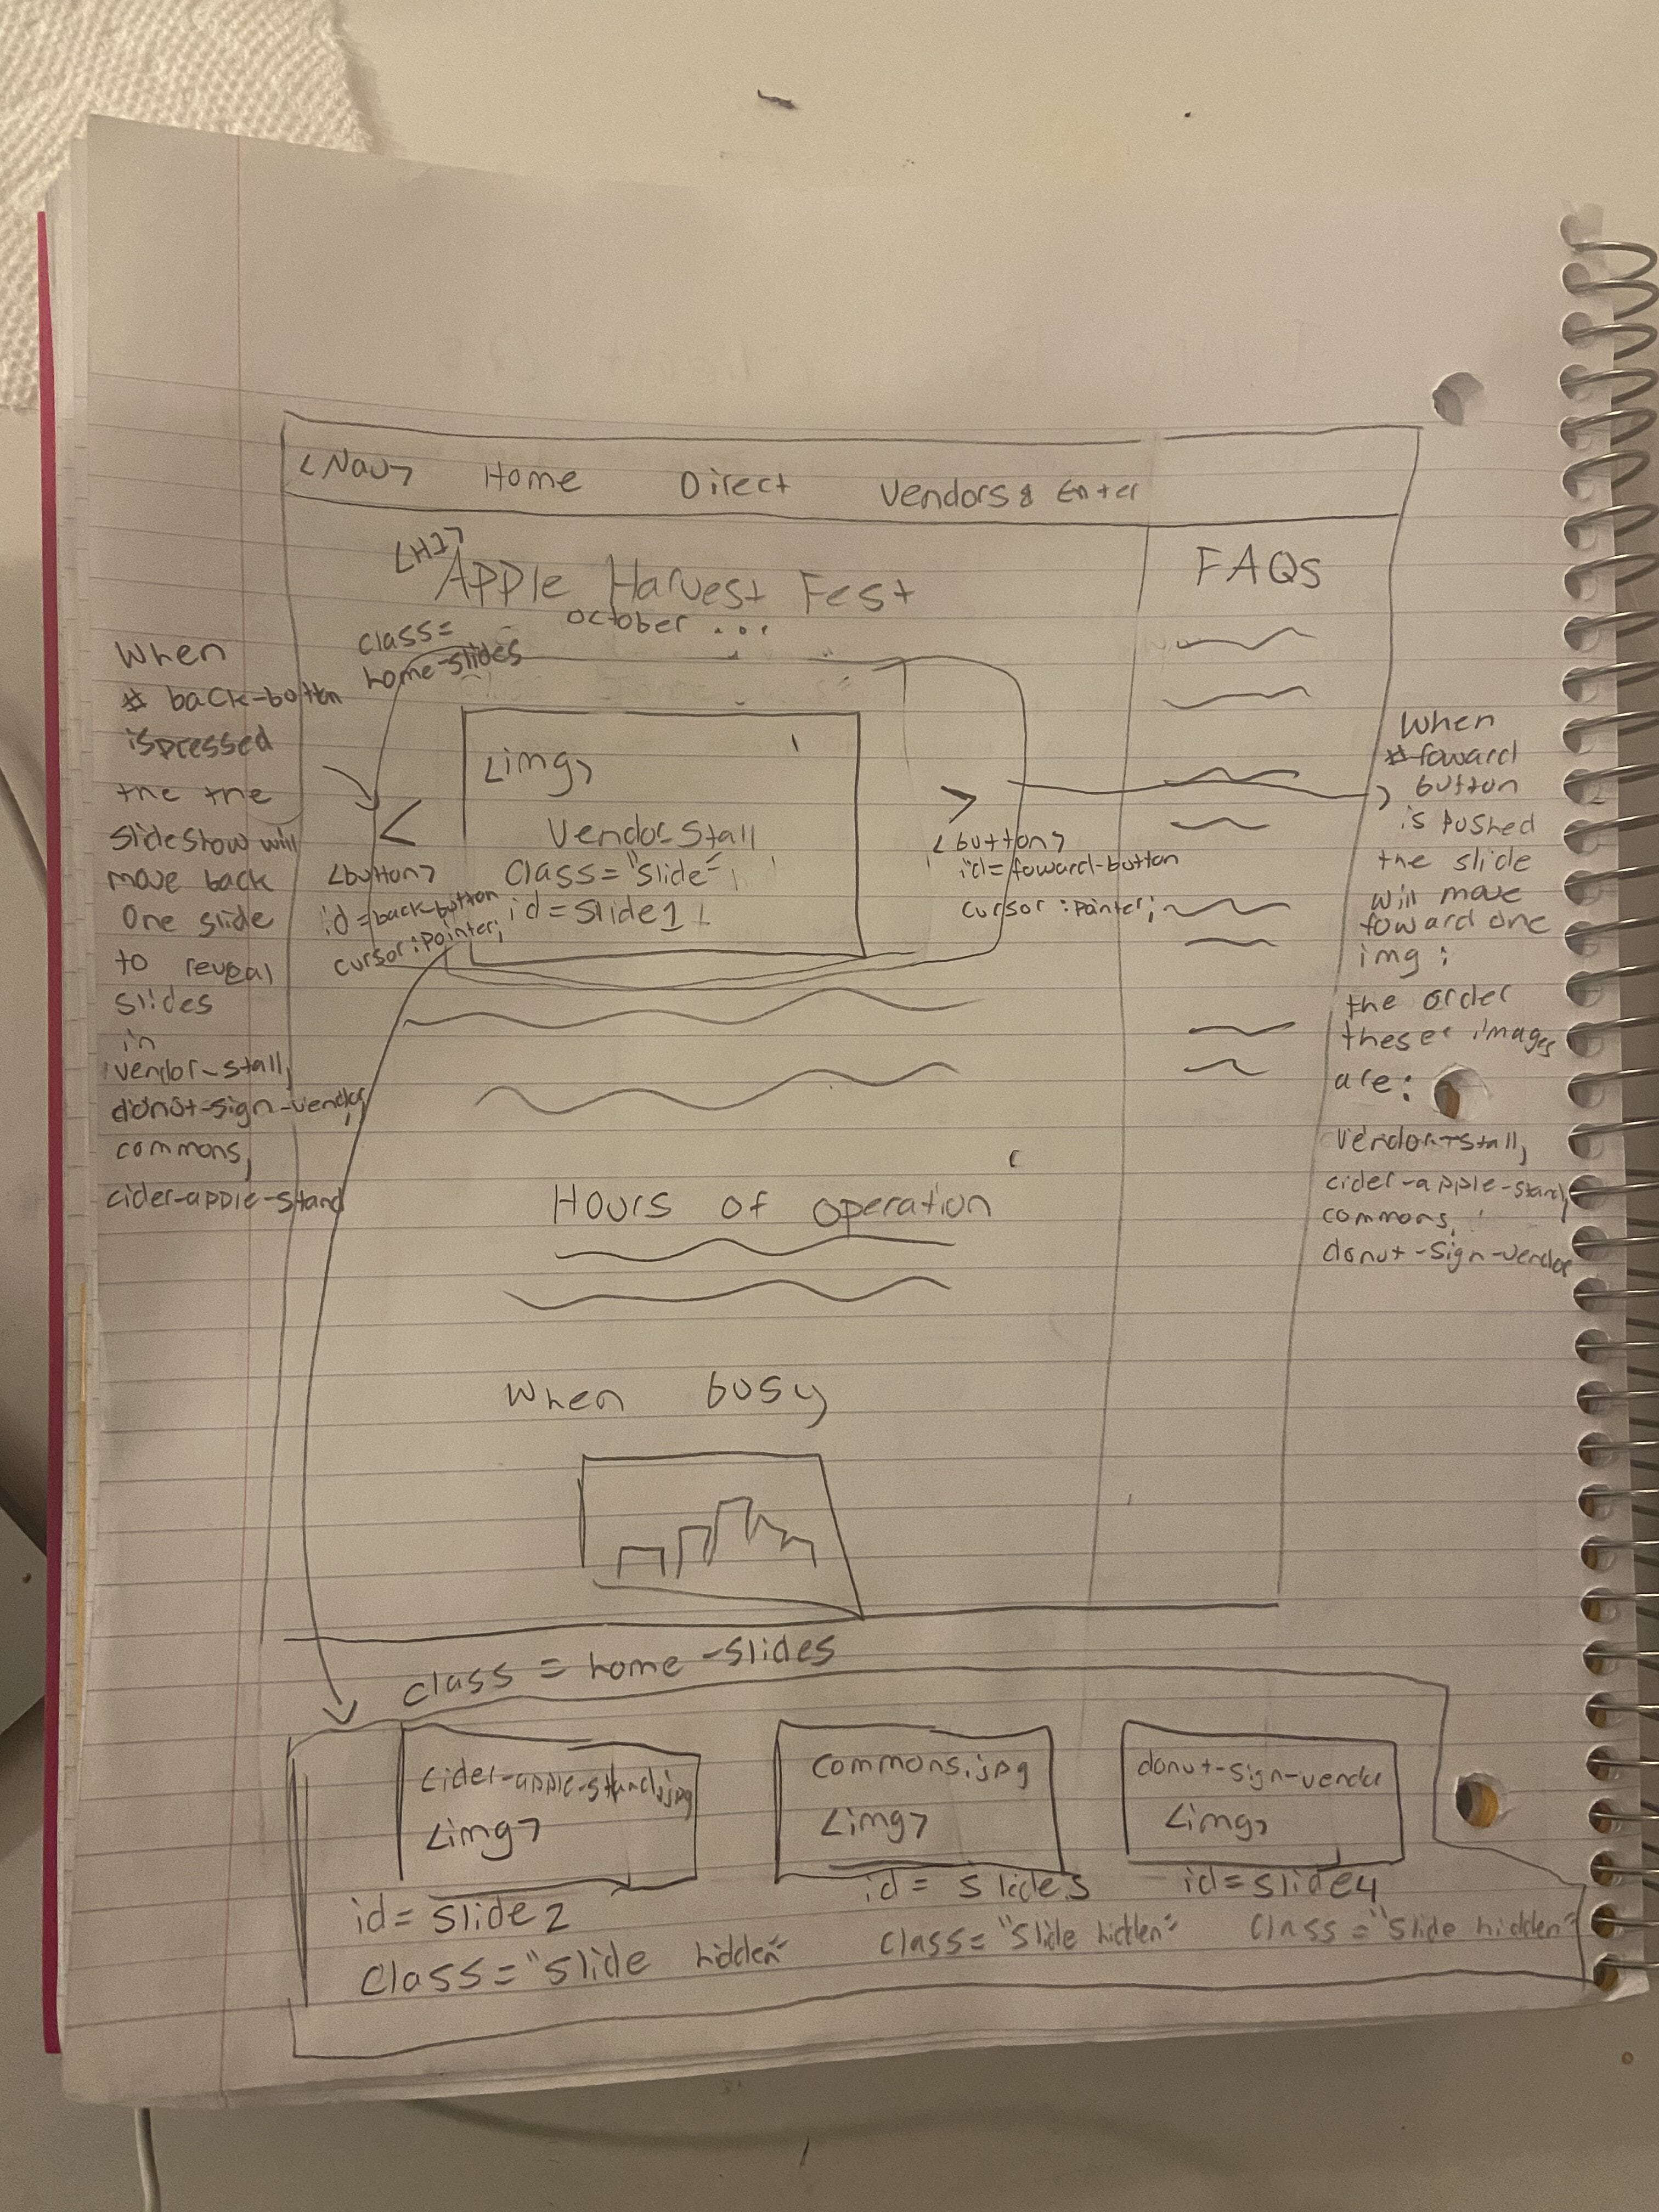 <Nav> Home Direct Vendors & Enter
<H1>
Apple Harvest Fest
october ...
FAQs
class=
home-slides
When
# back-button
is pressed
the the
slideshow will
move back
one slide
to reveal
slides
in
vendor-stall,
donut-sign-vendor,
commons,
cider-apple-stand
<
<button>
id=back-button
cursor:pointer;
<img>
Vendor Stall
Class="slide"
id=slide1
>
<button>
id=foward-button
cursor:pointer;
When
#foward
button
is pushed
the slide
will move
foward one
img:
the order
these images
are:
Vendor-stall,
cider-apple-stand,
commons,
donut-sign-vendor
Hours of operation
When busy
class = home-slides
cider-apple-stand.jpg
<img>
id= slide2
Class="slide hidden"
commons.jpg
<img>
id= slide3
Class="slide hidden"
donut-sign-vendor
<img>
id=slide4
Class="slide hidden"